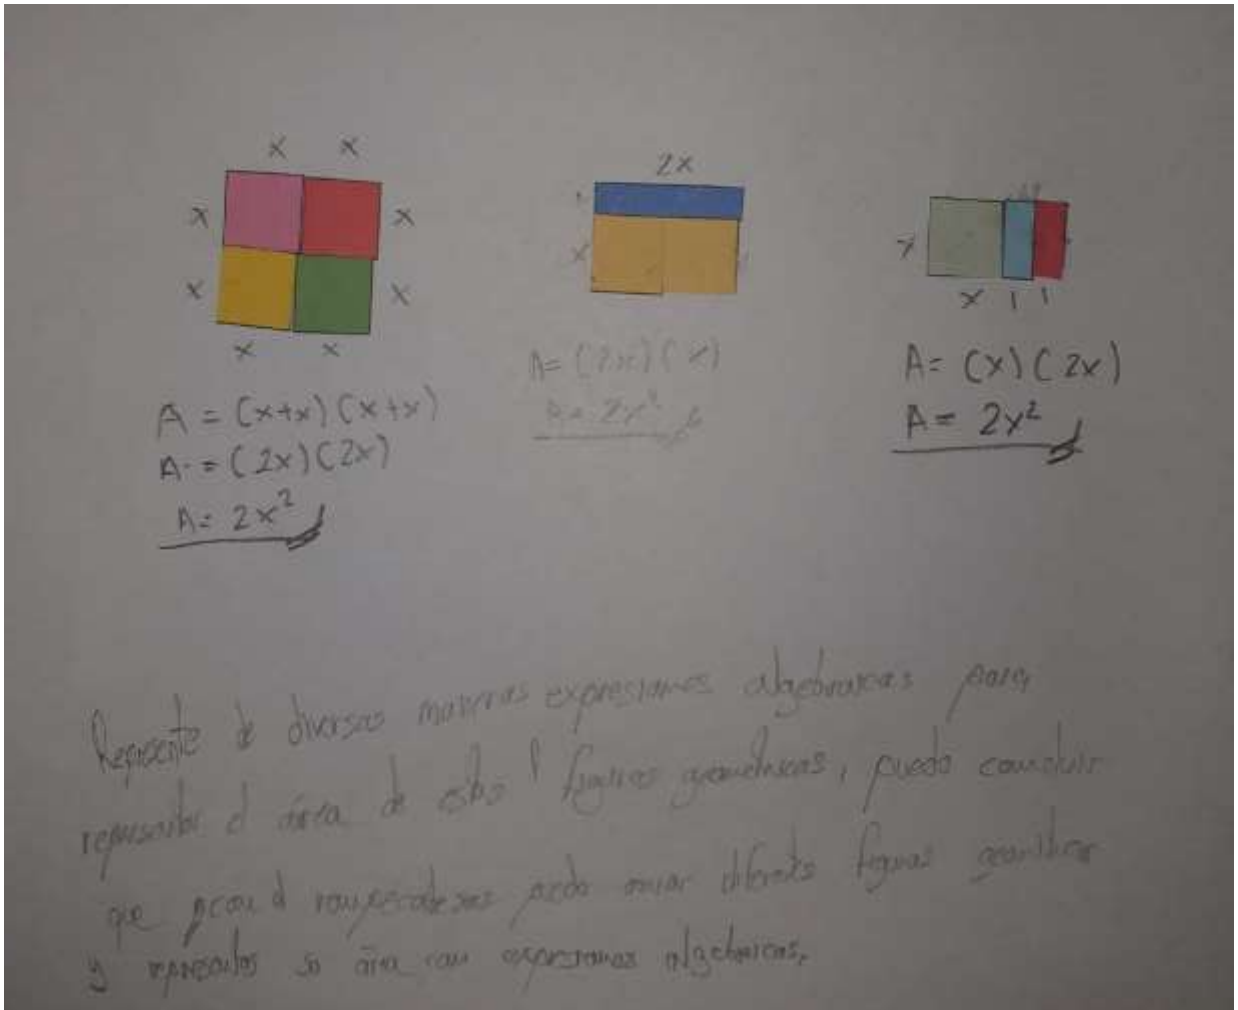 x x
x x
x x
x x
A = (x+x) (x+x)
A = (2x) (2x)
A = 2x²
2x
x
A = (2x) (x)
A = 2x²
x
x 1 1
A = (x) (2x)
A = 2x²
Represente de diversas maneras expresiones algebraicas para
representar el área de estas figuras geométricas, puedo concluir
que con el rompecabezas puedo armar diferentes figuras
y su área con expresiones algebraicas.